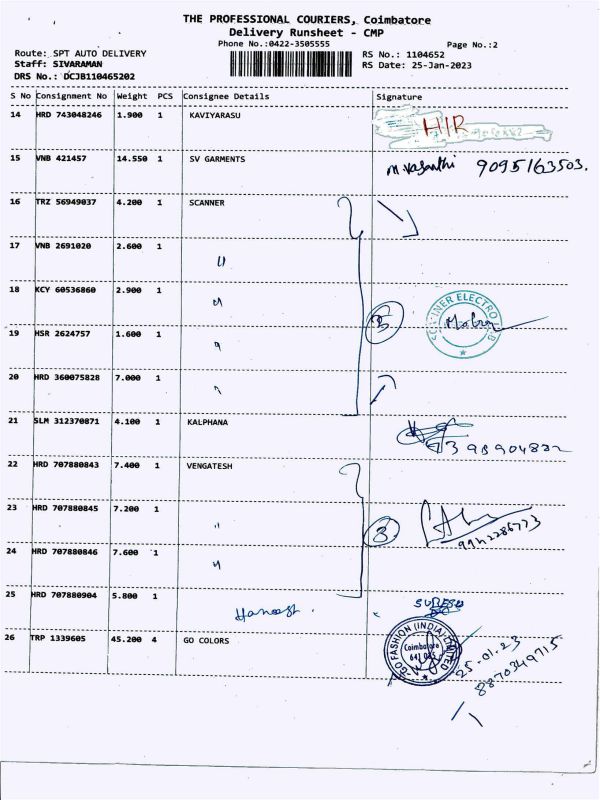 THE PROFESSIONAL COURIERS, Coimbatore
Delivery Runsheet - CMP
Phone No.:0422-3505555
Page No.:2
Route: SPT AUTO DELIVERY
Staff: SIVARAMAN
DRS No.: DCJB110465202
RS No.: 1104652
RS Date: 25-Jan-2023
S No Consignment No Weight PCS Consignee Details Signature
14 HRD 743048246 1.900 1 KAVIYARASU HIR
15 VNB 421457 14.550 1 SV GARMENTS M.Vasanthi 9095163503.
16 TRZ 56949037 4.200 1 SCANNER
17 VNB 2691020 2.600 1 "
18 KCY 60536860 2.900 1 "
5
19 HSR 2624757 1.600 1 "
20 HRD 360075828 7.000 1 "
21 SLM 312370871 4.100 1 KALPHANA
22 HRD 707880843 7.400 1 VENGATESH
23 HRD 707880845 7.200 1 "
3
24 HRD 707880846 7.600 1 "
25 HRD 707880904 5.800 1
SURESH
26 TRP 1339605 45.200 4 GO COLORS
GO FASHION (INDIA) LIMITED
Coimbatore
25-01-23
8870349715